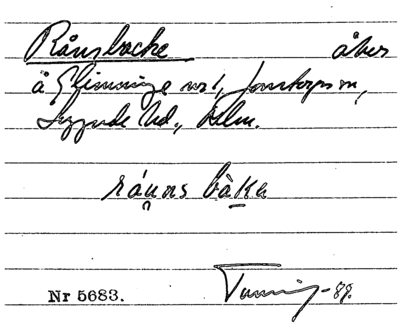 Rånsbacke åker
å Glimminge nr 1, Jonstorps sn,
Luggude hd., Malm.
ráuns bàka
Nr 5683. Tuning -88.